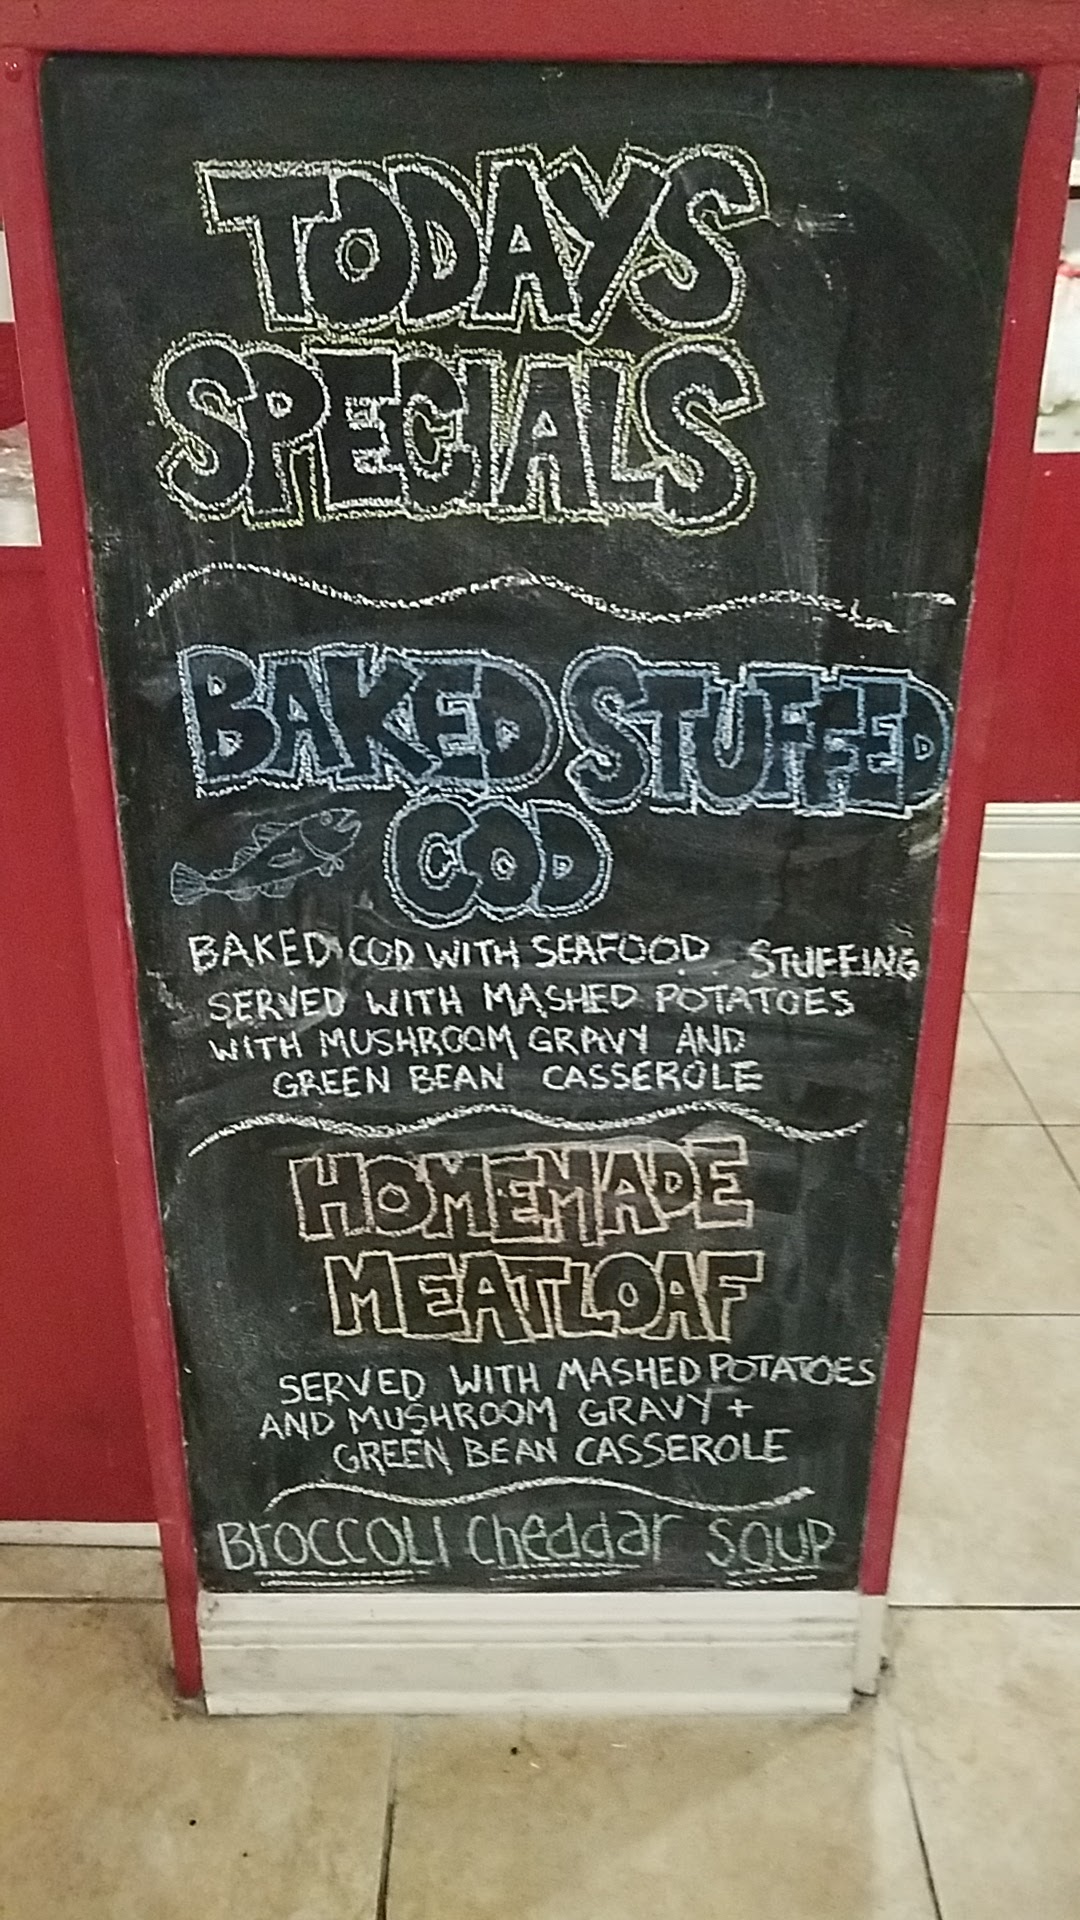 TODAYS
SPECIALS
BAKED STUFFED
COD
BAKED COD WITH SEAFOOD STUFFING
SERVED WITH MASHED POTATOES
WITH MUSHROOM GRAVY AND
GREEN BEAN CASSEROLE
HOMEMADE
MEATLOAF
SERVED WITH MASHED POTATOES
AND MUSHROOM GRAVY +
GREEN BEAN CASSEROLE
BrOCCOLI Cheddar SOUP